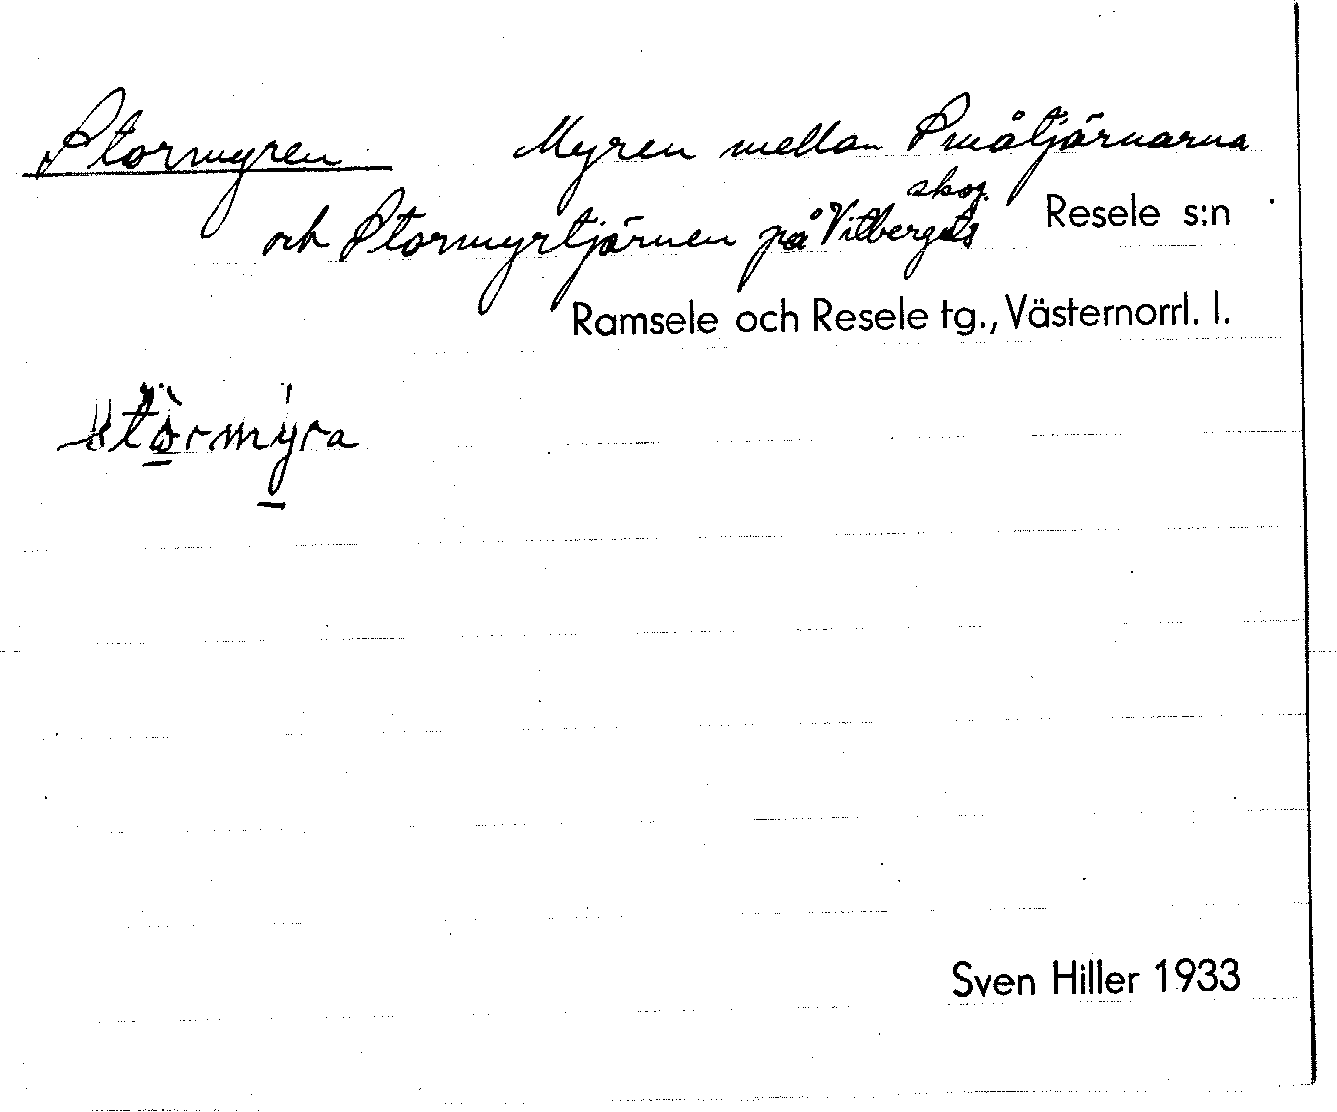 Stormyren Myren mellan Småtjärnarna
och Stormyrtjärnen på Vitbergets skog. Resele s:n
Ramsele och Resele tg., Västernorrl. l.
stòrmýra
Sven Hiller 1933